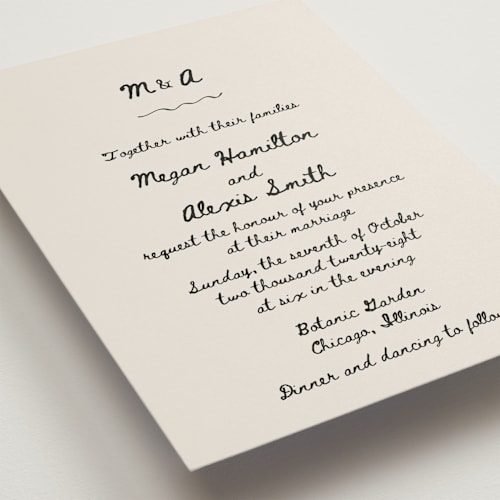 M & A
Together with their families
Megan Hamilton
and
Alexis Smith
request the honour of your presence
at their marriage
Sunday, the seventh of October
two thousand twenty-eight
at six in the evening
Botanic Garden
Chicago, Illinois
Dinner and dancing to follow